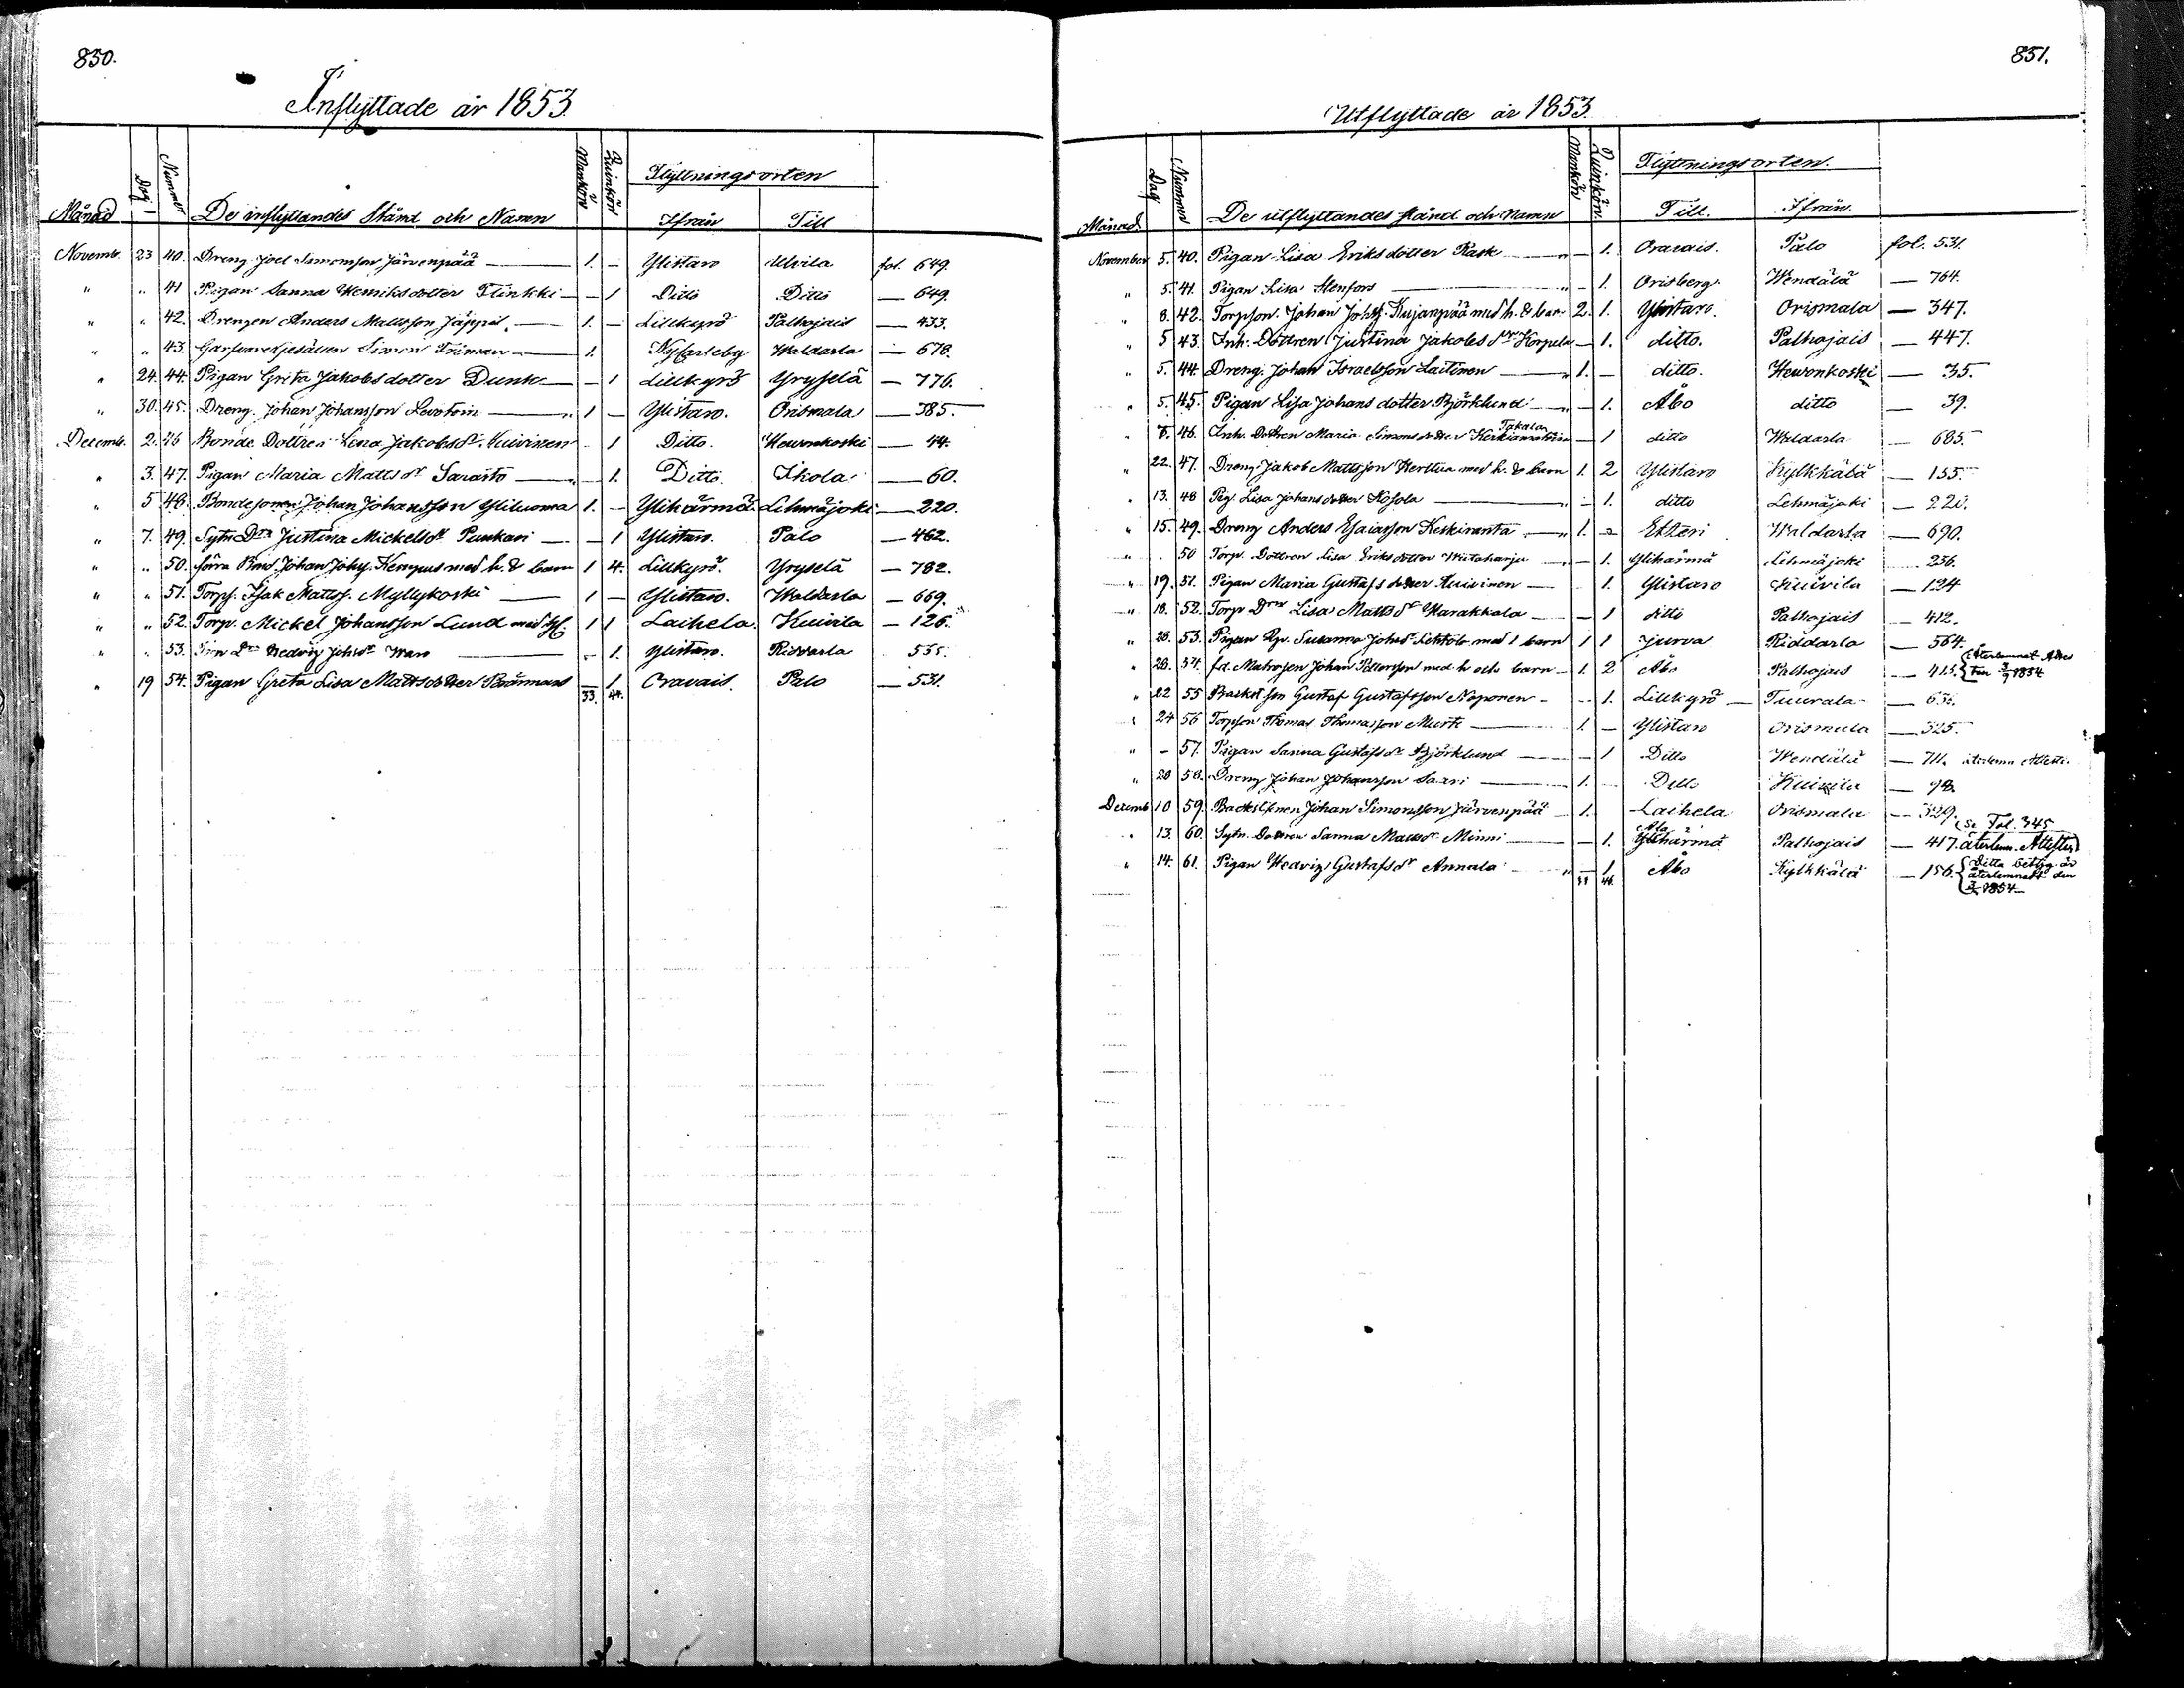 850.
Inflyttade år 1853.
Månad Dag Nummer De inflyttandes Stånd och Namn Mankön Quinkön Flyttningsorten
Ifrån Till
Novemb. 23 40. Dreng Joel Simonsson Järvenpää — 1. — Ylistaro Ulvila fol. 649.
" " 41 Pigan Sanna Henriksdotter Flinkki — — 1 Ditto Ditto — 649.
" " 42. Drengen Anders Mattsson Jäppi — 1. — Lillkyrö Palhojais — 433.
" " 43. Garfvaregesällen Simon — 1. Nycarleby Waldarla — 678.
" 24. 44. Pigan Greta Jakobsdotter Dunk — — 1 Lillkyrö Yryselä — 776.
" 30. 45. Dreng. Johan Johansson — 1 — Ylistaro. Orismala — 385.
Decemb. 2. 46 Bonde Dottren Lisa Jakobsdr Kuivinen — 1 Ditto. Hewonkoski — 44.
" 3. 47. Pigan Maria Mattsdr Sarasto — 1. Ditto. Ikola — 60.
" 5 48. Bondesonen Johan Johansson Yliluoma 1. — Ylihärmä Lehmäjoki — 220.
" 7. 49. Sytn. Dtr Justina Mickelsdr Punkari — — 1 Ylistaro. Palo — 462.
" " 50. förra Bond Johan Johss. Kempus med h. & barn 1 4. Lillkyrö. Yryselä — 782.
" " 51. Torp. Isak Matts. Myllykoski — 1 — Ylistaro. Waldarla — 669.
" " 52. Torp. Mickel Johansson Lund med h. 1 1 Laihela. Kuivila — 126.
" " 53. Dtr Hedvig Johsdr — — 1. Ylistaro. Riddarla 555.
" 19 54. Pigan Greta Lisa Mattsdotter Brännars — 1 Oravais. Palo — 531.
33. 44.
851.
Utflyttade år 1853.
Månad Dag Nummer De utflyttandes stånd och Namn Mankön Quinkön Flyttningsorten.
Till. Ifrån.
November 5. 40. Pigan Lisa Eriksdotter Rask — — 1. Oravais. Palo fol. 531.
" 5. 41. Pigan Lisa Stenfors — — 1. Orisberg. Wendälä — 764.
" 8. 42. Torpson. Johan Johss. Kujanpää med h. & barn 2. 1. Ylistaro. Orismala — 347.
" 5 43. Inh. Dottren Justina Jakobsdr Korpela — 1. ditto. Palhojais — 447.
" 5. 44 Dreng. Johan Israelsson Laitinen — 1. — ditto. Hewonkoski — 35.
" 5. 45. Pigan Lisa Johansdotter Björklund — — 1. Åbo ditto — 39.
" 46. Inh. Dottren Maria Simonsdotter Takala — 1 ditto Waldarla — 685.
" 22. 47. Dreng Jakob Mattsson Herttua med h. & barn 1. 2 Ylistaro Kylkkälä — 155.
" 13. 48 Pig. Lisa Johansdotter Kosola — — 1. ditto Lehmäjoki — 220.
" 15. 49. Dreng Anders Esaiasson Keskiranta — 1. Etseri Waldarla — 690.
" 50 Torp. Dottren Lisa Eriksdotter Wiitaharju — — 1. Ylihärmä Lehmäjoki 236.
" 19. 51. Pigan Maria Gustafsdotter Kuivinen — 1. Ylistaro Kuivila — 124
" 18. 52. Torp Dtr Lisa Mattsdr Harakkala — — 1 ditto Palhojais — 412.
" 28. 53. Pigan Susanna Johsdr med 1 barn 1 1 Jurva Riddarla — 564.
" 28. 54. fd. Matrosen Johan Pettersson med h och barn — 1. 2 Åbo Palhojais — 415. Återlemnat 1854
" 22 55 Backst. son Gustaf Gustafsson Noponen — 1. Lillkyrö — Tuurala —
" 24 56 Torpson Thomas Thomasson Murto — 1. — Ylistaro Orismala — 325.
" — 57. Pigan Sanna Gustafsdr Björklund — — 1 Ditto Wendälä — 711.
" 28 58. Dreng Johan Johansson Saari — 1. Ditto Kuivila —
Decemb 10 59. Johan Simonsson Järvenpää 1. Laihela Orismala — 329. Se Fol. 345
" 13. 60. Sytn. Dottren Sanna Mattsdr Minni — — 1. Ylihärmä Palhojais — 417. återlemn. Attesten
" 14. 61. Pigan Hedvig Gustafsdr Annala — 1 Åbo Kylkkälä — 156. Detta betyg är återlemnadt den 1854